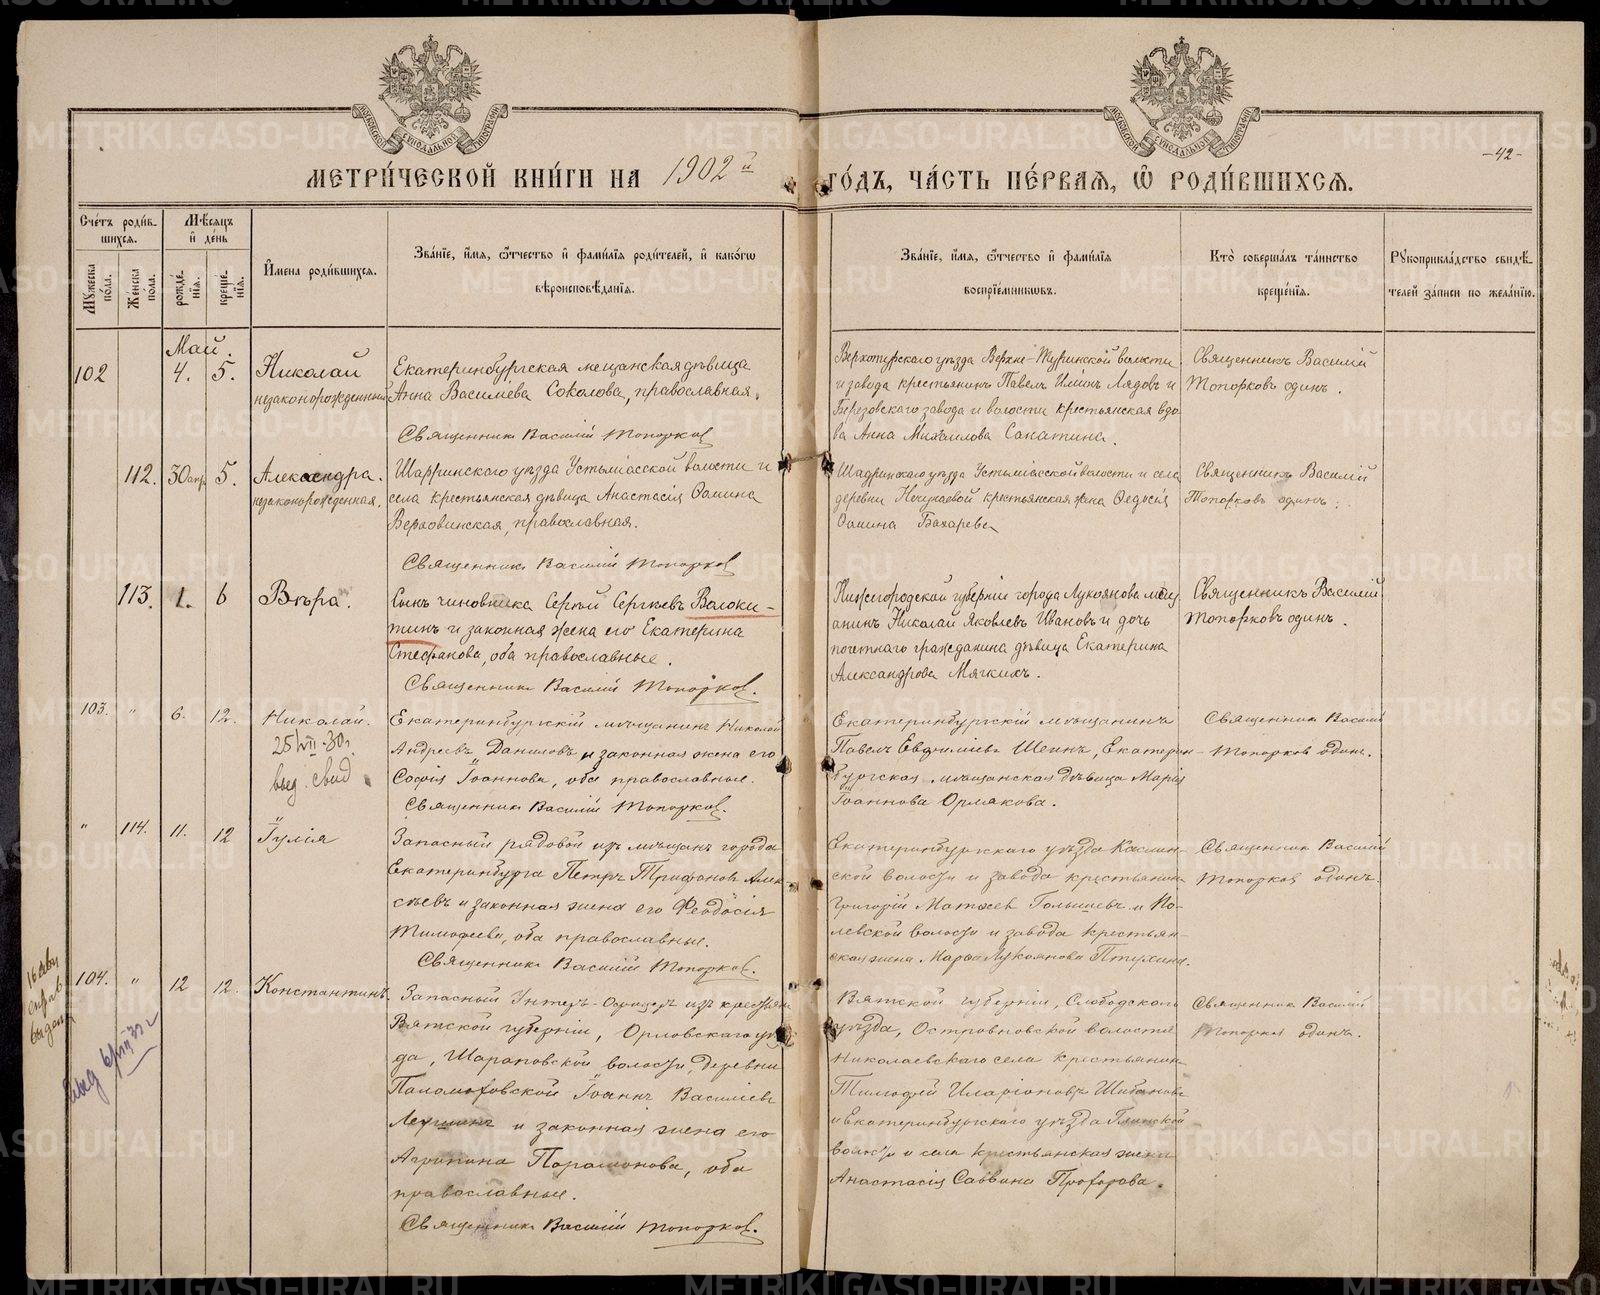 -42-
МЕТРИ́ЧЕСКОЙ КНИ́ГИ НА 1902й ГО́ДЪ, ЧА́СТЬ ПЕ́РВАЯ, Ѡ РОДИ́ВШИХСЯ.
Сче́тъ роди́в-
шихся.
Му́жеска по́ла.
Же́нска по́ла.
Мѣ́сяцъ
и́ де́нь
рожде́-
нїя.
креще́-
нїя.
И́мена роди́вшихся.
Зва́нїе, и́мя, ѻ́тчество и́ фами́лїя роди́телей, и́ како́гѡ
вѣроисповѣ́данїя.
Зва́нїе, и́мя, ѻ́тчество и́ фами́лїя
воспрїе́мниковъ.
Кто̀ соверша́лъ та́инство
креще́нїя.
Рꙋкоприкла́дство свидѣ́-
телей за́писи по жела́нїю.
Май.
102
4. 5.
Николай
незаконорожденный
Екатеринбургская мещанская дѣвица
Анна Васильева Соколова, православная.
Священникъ Василій Топорков
Верхотурскаго уѣзда Верхне-Туринской волости
и завода крестьянинъ Павелъ Ильинъ Лядовъ и
Березовскаго завода и волости крестьянская вдо-
ва Анна Михаилова Сапатина.
Священникъ Василій
Топорковъ один.
112. 30 апр. 5.
Александра.
незаконорожденная.
Шадринскаго уѣзда Устьміасской волости и
села крестьянская дѣвица Анастасія Ѳомина
Верховинская, православная.
Священникъ Василій Топорков
Шадринскаго уѣзда Устьміасской волости и села
деревни Нечунаевой крестьянская жена Ѳедосія
Ѳомина Бахарева
Священникъ Василій
Топорковъ одинъ.
113. 1. 6
Вѣра.
Сынъ чиновника Сергѣй Сергѣевъ Волоки-
тинъ и законная жена его Екатерина
Стефанова, оба православные.
Священникъ Василій Топорков.
Нижегородской губерніи города Лукоянова мѣщ-
анинъ Николай Яковлевъ Ивановъ и дочь
почетнаго гражданина дѣвица Екатерина
Александрова Мягкихъ.
Священникъ Василій
Топорковъ одинъ.
103. " 6. 12.
Николай.
25/VII-30г.
выд. свид.
Екатеринбургскій мѣщанинъ Николай
Андреевъ Даниловъ и законная жена его
Софія Іоаннова, оба православные.
Священникъ Василій Топорков.
Екатеринбургскій мѣщанинъ
Павелъ Евфиміевъ Шеинъ, Екатерин-
бургская мѣщанская дѣвица Марія
Іоаннова Орлякова.
Священникъ Василій
Топорков одинъ.
" 114. 11. 12
Іулія
Запасный рядовой изъ мѣщанъ города
Екатеринбурга Петръ Трифоновъ Алек-
сѣевъ и законная жена его Феодосія
Тимофеева, оба православные.
Священникъ Василій Топорков.
Екатеринбургскаго уѣзда Каслин-
ской волости и завода крестьянинъ
Григорій Матвеев Голышевъ и По-
левской волости и завода крестьян-
ская жена Марѳа Лукоянова Птухина.
Священникъ Василій
Топорков одинъ.
104. " 12 12.
Константинъ.
Запасный Унтеръ-Офицеръ изъ крестьянъ
Вятской губерніи, Орловскаго уѣз-
да, Шараповской волости, деревни
Паломоховской Іоаннъ Василіевъ
и законная жена его
Агрипина Парамонова, оба
православные.
Священникъ Василій Топорков.
Вятской губерніи, Слободскаго
уѣзда, Островновской волости
Николаевскаго села крестьянинъ
Тимофей Иларіоновъ Шибановъ
и Екатеринбургскаго уѣзда
волости и села крестьянская жена
Анастасія Саввина Прохорова.
Священникъ Василій
Топорков одинъ.